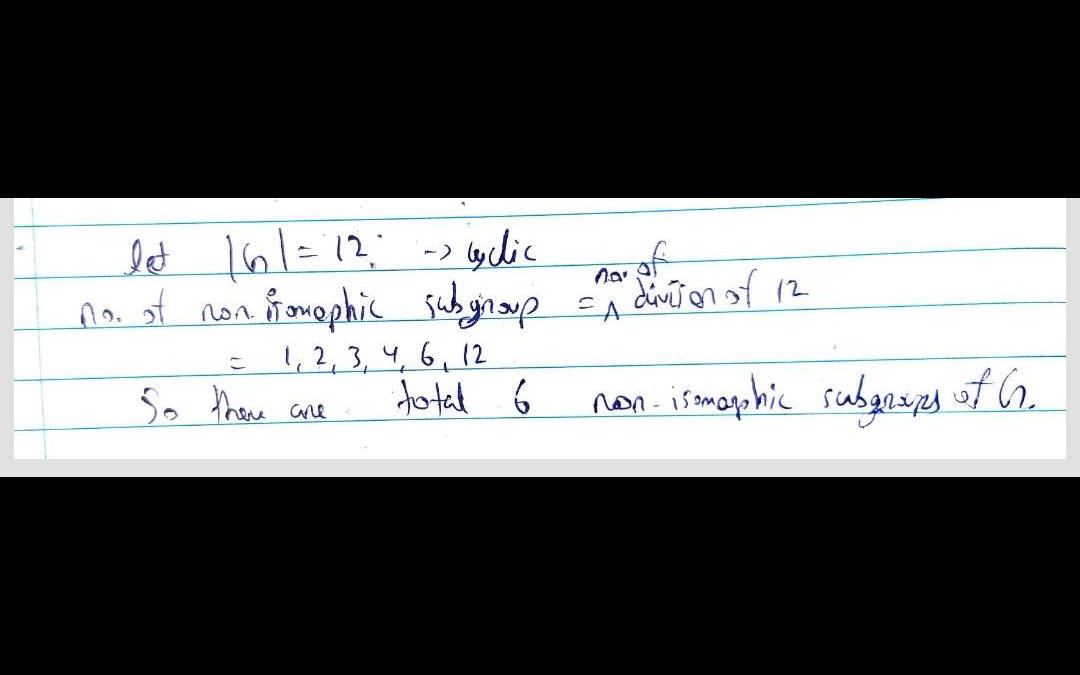 let |G| = 12. → cyclic
no. of non isomophic subgroup = no. of division of 12
= 1, 2, 3, 4, 6, 12
So there are total 6 non-isomorphic subgroups of G.